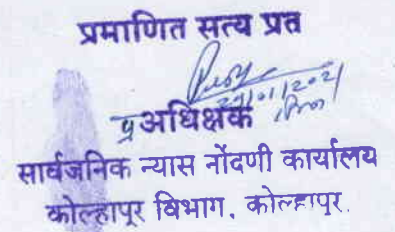 प्रमाणित सत्य प्रत
प्र अधिक्षक
सार्वजनिक न्यास नोंदणी कार्यालय
कोल्हापूर विभाग, कोल्हापूर.